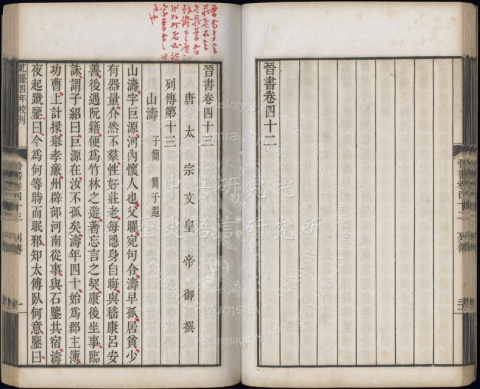 晉書卷四十二
晉書卷四十三
唐太宗文皇帝御撰
列傳第十三
山濤 子簡 簡子遐
山濤字巨源河內懷人也父曜宛句令濤早孤居貧少
有器量介然不羣性好莊老每隱身自晦與嵇康呂安
善後遇阮籍便爲竹林之遊著忘言之契康後坐事臨
誅謂子紹曰巨源在汝不孤矣濤年四十始爲郡主簿
功曹上計掾舉孝廉州辟部河南從事與石鑒共宿濤
夜起蹴鑒曰今爲何等時而眠邪知太傅臥何意鑒曰
乾隆四年校刊
晉書卷四十三 列傳 一